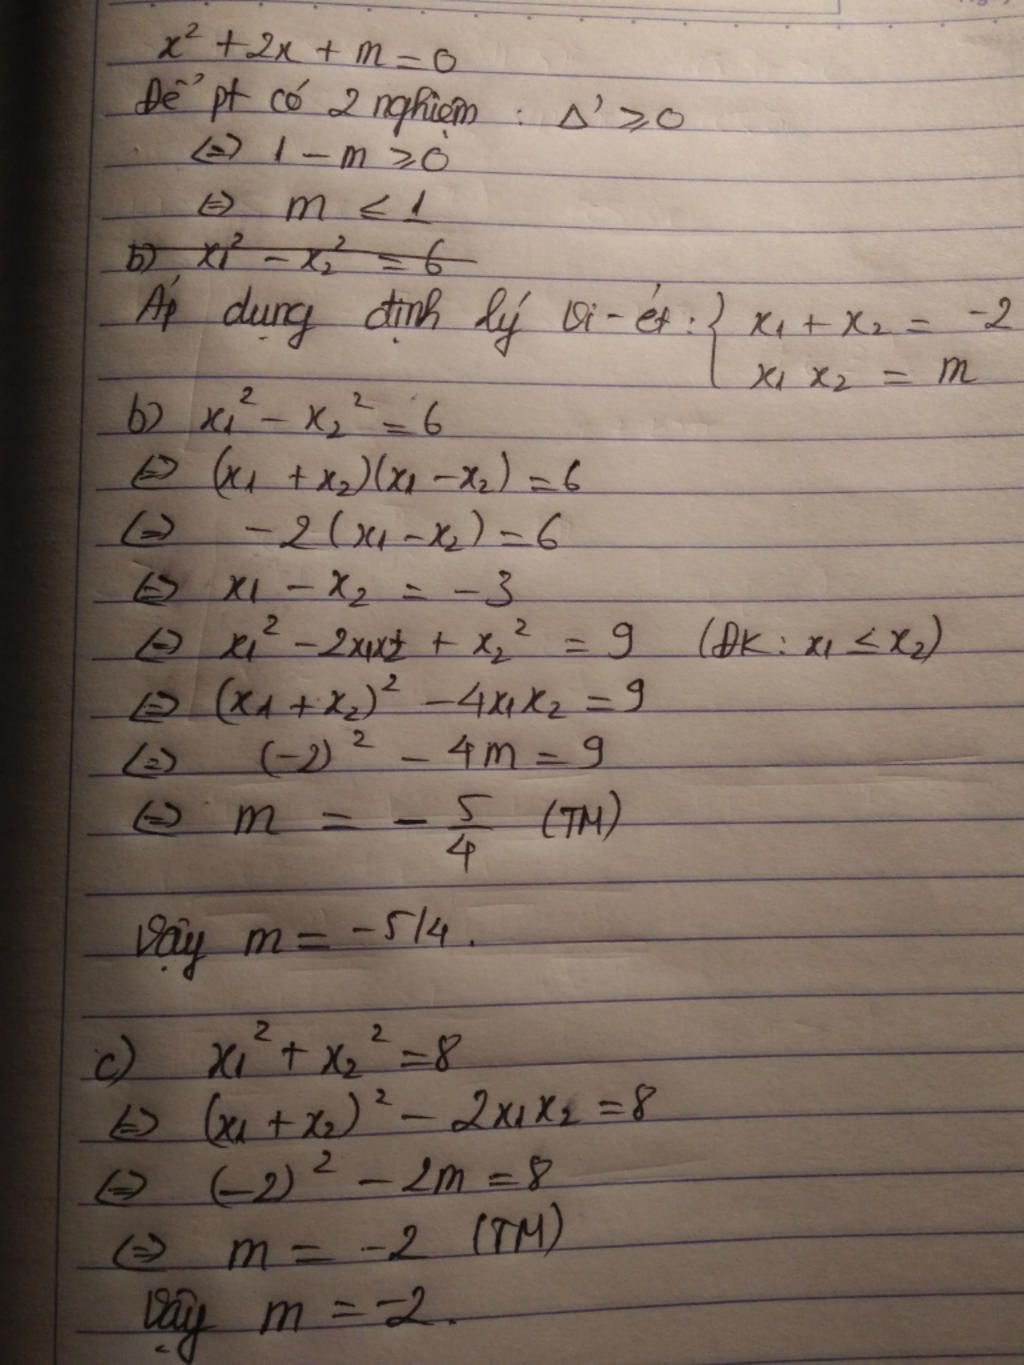 x² + 2x + m = 0
Để pt có 2 nghiệm : Δ' ⩾ 0
⇔ 1 - m ⩾ 0
⇔ m ≤ 1
b) x₁² - x₂² = 6
Áp dụng định lý Vi-ét: { x₁ + x₂ = -2
x₁ x₂ = m
b) x₁² - x₂² = 6
⇔ (x₁ + x₂)(x₁ - x₂) = 6
⇔ -2(x₁ - x₂) = 6
⇔ x₁ - x₂ = -3
⇔ x₁² - 2x₁x₂ + x₂² = 9 (ĐK : x₁ ≤ x₂)
⇔ (x₁ + x₂)² - 4x₁x₂ = 9
⇔ (-2)² - 4m = 9
⇔ m = - 5/4 (TM)
Vậy m = -5/4.
c) x₁² + x₂² = 8
⇔ (x₁ + x₂)² - 2x₁x₂ = 8
⇔ (-2)² - 2m = 8
⇔ m = -2 (TM)
Vậy m = -2.